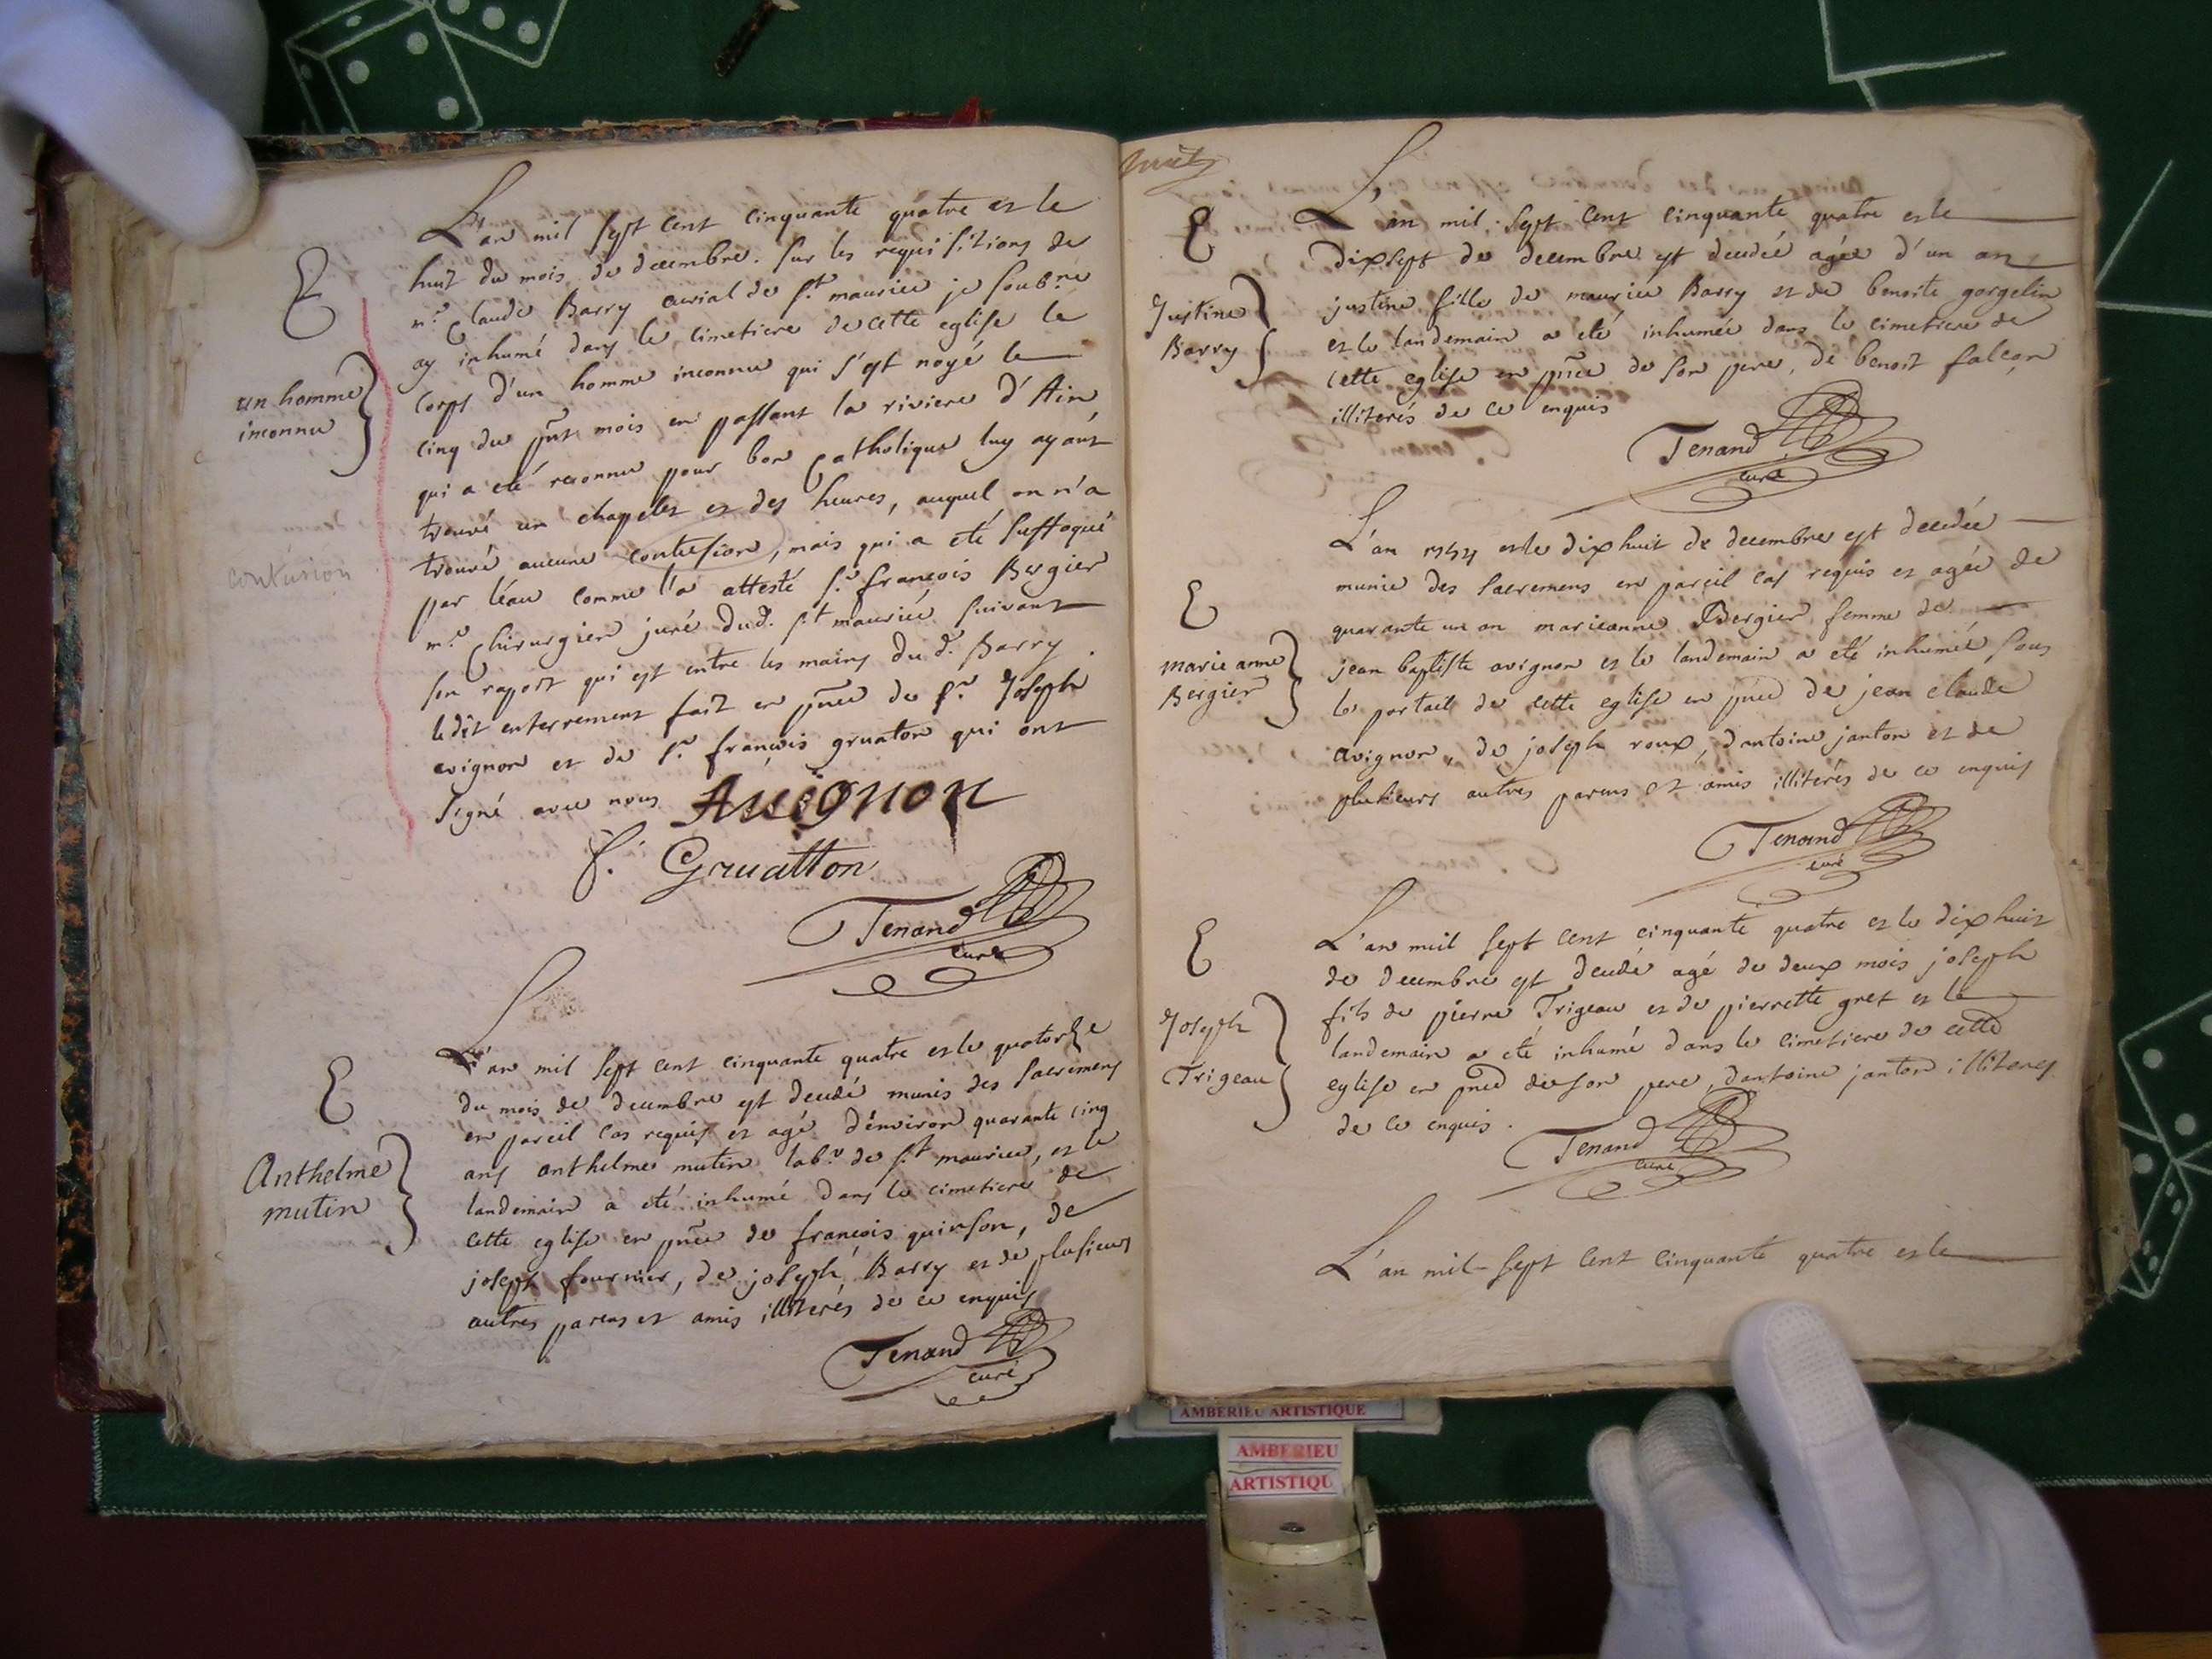 L'an mil sept cent cinquante quatre et le
huit du mois de decembre. sur les requisitions de
m.e Claude Barry curial de s.t maurice je soub.né
ay inhumé dans le cimetiere de cette eglise le
corps d'un homme inconnu qui s'est noyé le
cinq du pnt mois en passant la riviere d'Ain,
qui a eté reconnu pour bon Catholique luy ayant
trouvé un chapelet et des heures, auquel on n'a
trouvé aucune contusion, mais qui a eté suffoqué
par l'eau comme l'a attesté s.r françois Bergier
m.e Chirurgien juré dud. s.t maurice suivant
son raport qui est entre les mains du d. Barry.
ledit enterrement fait en pnce de s.r Joseph
avignon et de s.r françois gruaton qui ont
signé avec nous Auignon
f. Gruatton
Tenand
curé
E
un homme
inconnu
contusion
L'an mil sept cent cinquante quatre et le quatorze
du mois de decembre est decedé munis des sacremens
en pareil cas requis et agé d'environ quarante cinq
ans anthelme mutin lab.r de s.t maurice, et le
landemain a eté inhumé dans le cimetiere de
cette eglise en pnce de françois quinson, de
joseph fournier, de joseph Barry et de plusieurs
autres parens et amis illiterés de ce enquis
Tenand
curé
E
Anthelme
mutin
huit
L'an mil sept cent cinquante quatre et le
dixsept de decembre est decedée agée d'un an
justine fille de maurice Barry et de benoite gorgelin
et le landemain a eté inhumée dans le cimetiere de
cette eglise en pnce de son pere, de benoit falcon
illiterés de ce enquis
Tenand
curé
E
Justine
Barry
L'an 1754 et le dix huit de decembre est decedée
munie des sacremens en pareil cas requis et agée de
quarante un an marieanne Bergier femme de
jean baptiste avignon et le landemain a eté inhumée sous
le portail de cette eglise en pnce de jean claude
avignon, de joseph roux, d'antoine janton et de
plusieurs autres parens et amis illiterés de ce enquis
Tenand
curé
E
marie anne
Bergier
L'an mil sept cent cinquante quatre et le dix huit
de decembre est decedé agé de deux mois joseph
fils de pierre Trigeau et de pierrette gret et le
landemain a eté inhumé dans le cimetiere de cette
eglise en pnce de son pere, d'antoine janton illiterés
de ce enquis.
Tenand
curé
E
Joseph
Trigeau
L'an mil sept cent cinquante quatre et le
AMBERIEU ARTISTIQUE
AMBERIEU
ARTISTIQU